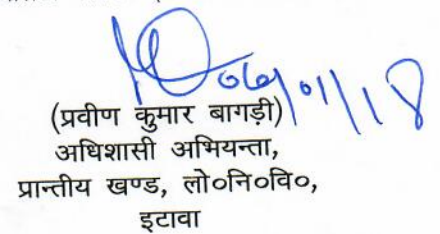 06/01/18
(प्रवीण कुमार बागड़ी)
अधिशासी अभियन्ता,
प्रान्तीय खण्ड, लो०नि०वि०,
इटावा